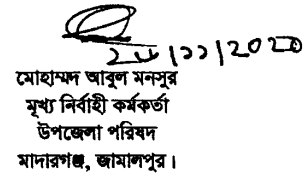 মোহাম্মদ আবুল মনসুর
মুখ্য নির্বাহী কর্মকর্তা
উপজেলা পরিষদ
মাদারগঞ্জ, জামালপুর।